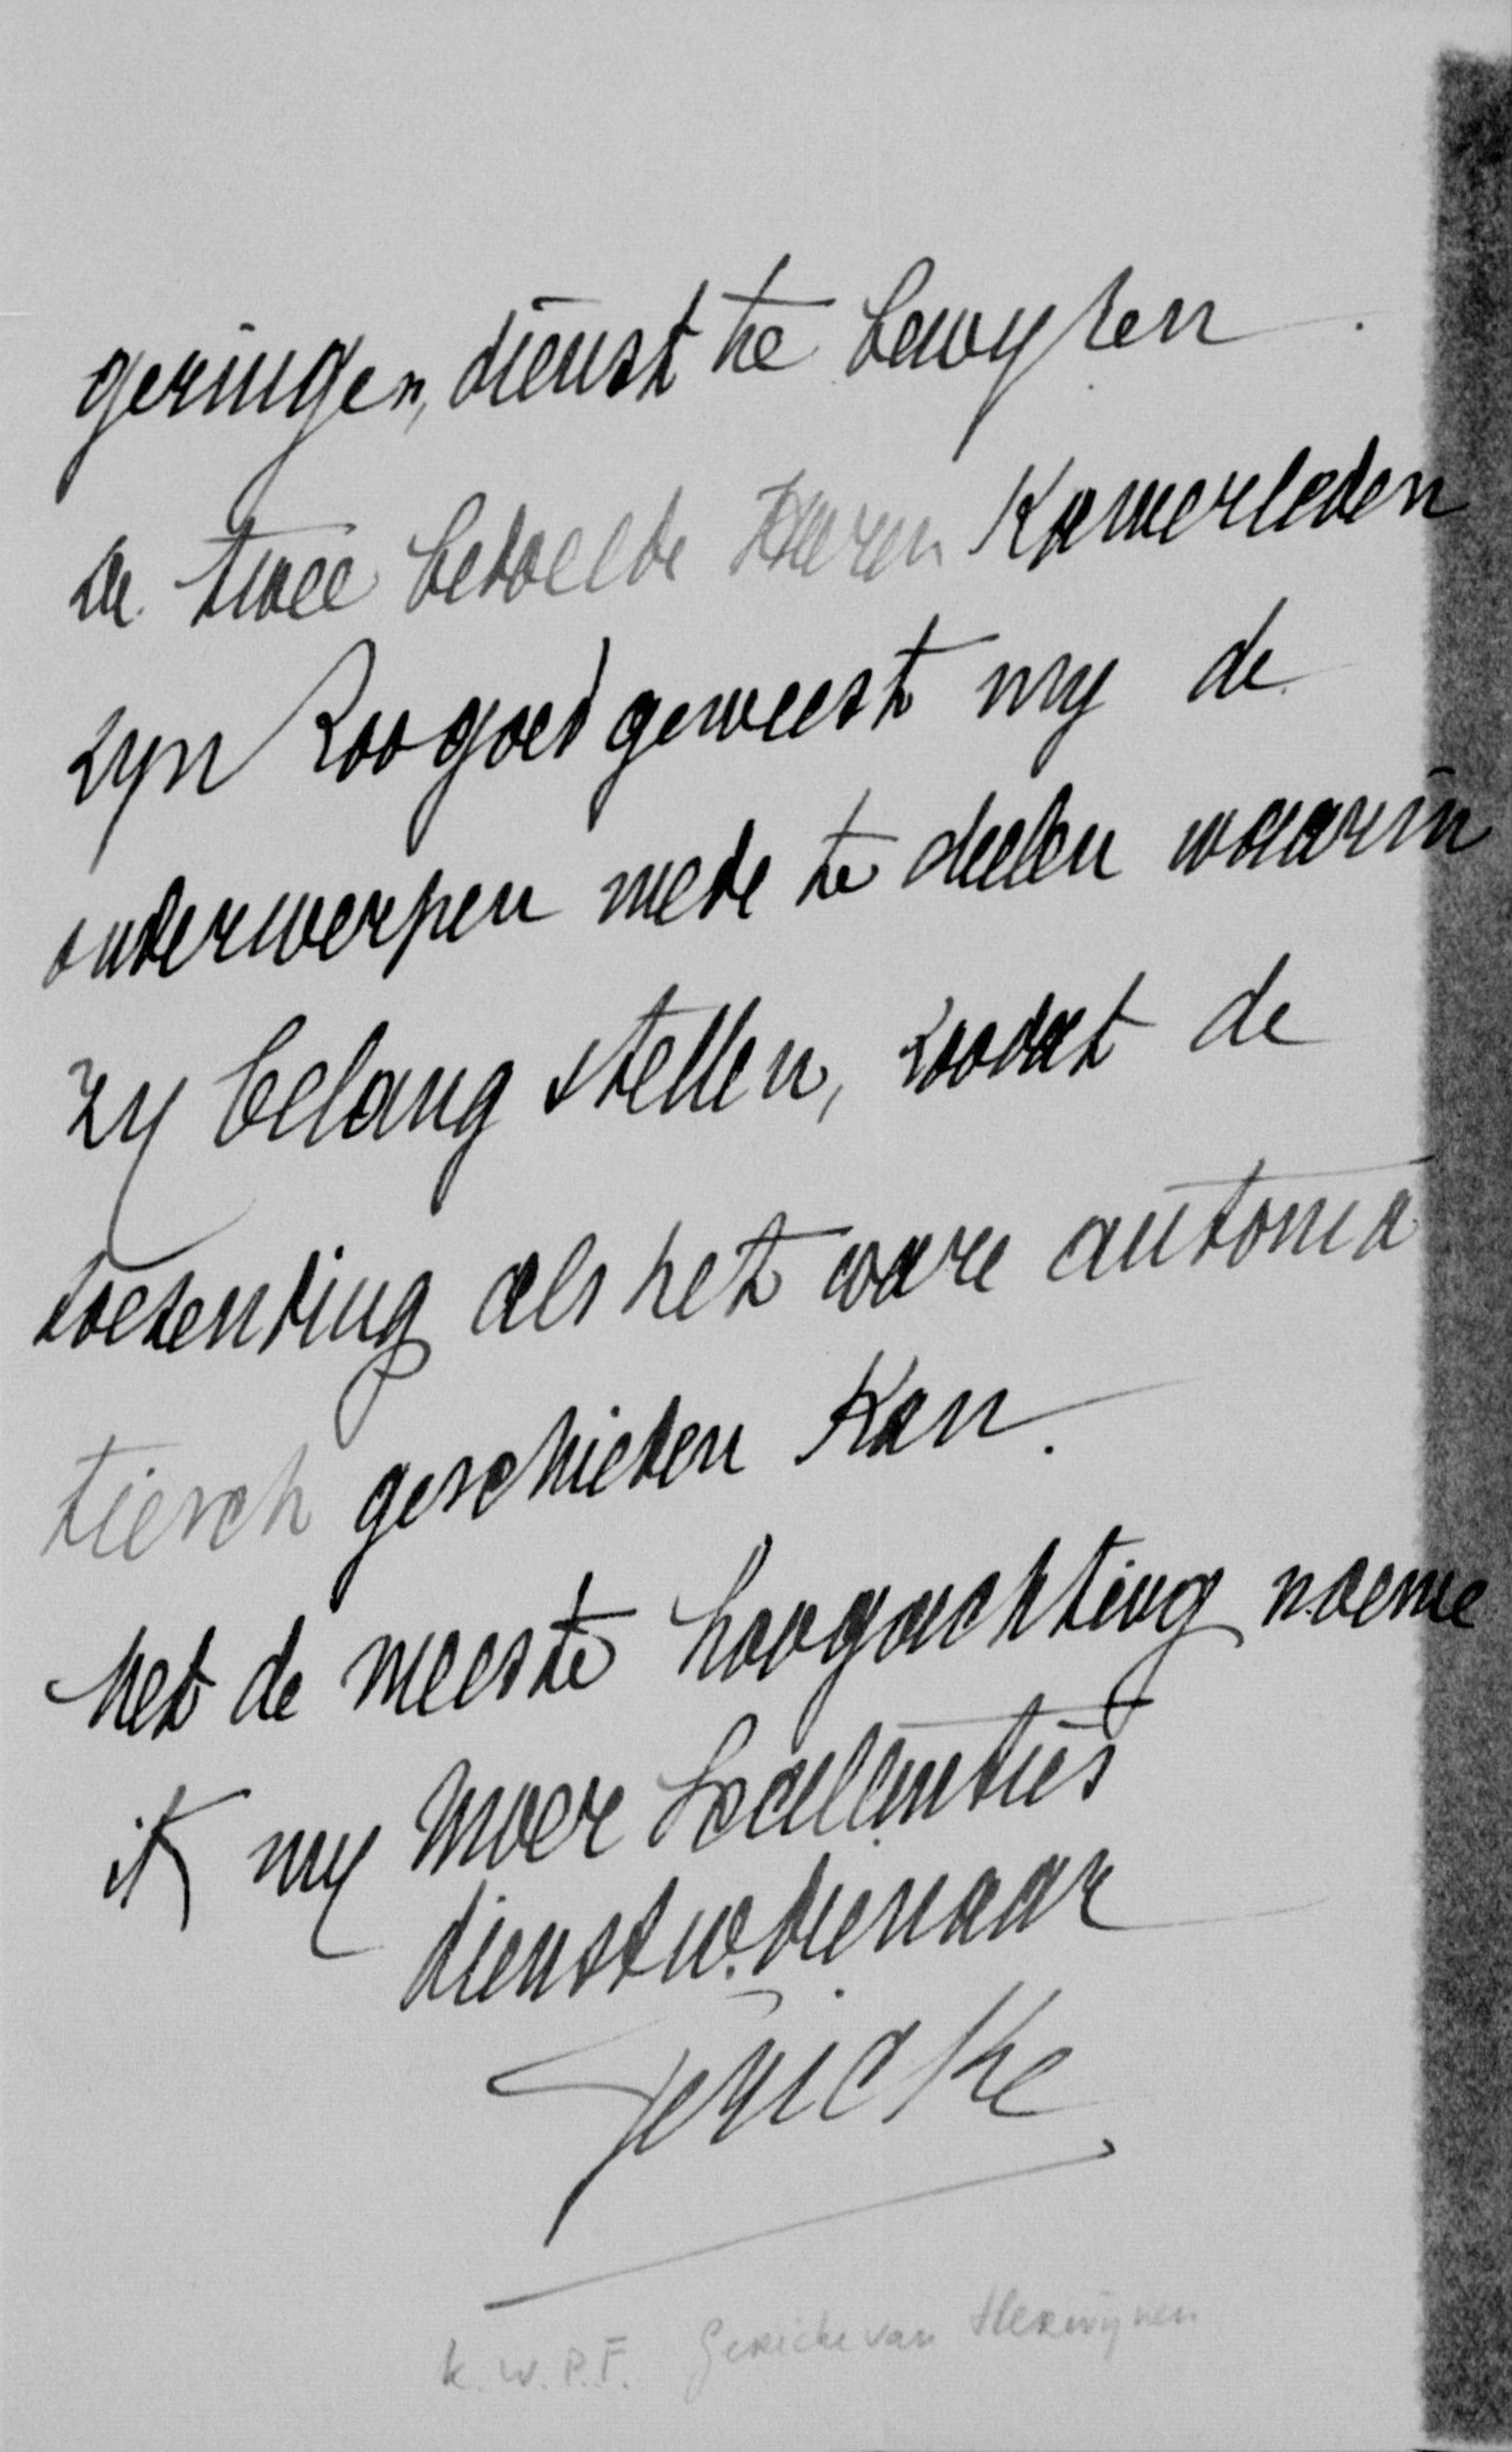 geringen, dienst te bewyzen.
de twee bedoelde Heeren Kamerleden
zyn zoo goed geweest my de
onderwerpen mede te deelen waarin
zy belang stellen, zoodat de
toezending als het ware automa
tiesch geschieden kan.
Met de meeste hoogachting noeme
ik my Uwer Excellenties
dienstw. dienaar
Gericke
K. W. P. F. Gericke van Herwijnen